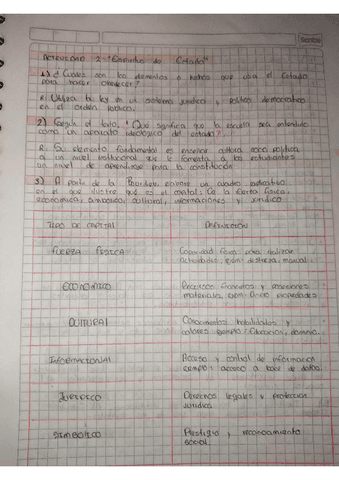 Actividad 2 "Espíritu de Estado"
1) ¿Cuales son los elementos o medios que usa el Estado
para hacer obedecer?
R. Utiliza la ley en un sistema juridico y Politico democratico
en el orden Politico.
2) Según el texto, ¿Que significa que la escuela sea entendida
como un aparato ideologico del estado?
R. Su elemento fundamental es enseñar cultura politica
a un nivel institucional que le fomenta a los estudiantes
un nivel de aprendizaje para la constitución
3) A partir de Bourdieu, elabore un cuadro
en el que ilustre que es el capital: De la fuerza física,
economica, simbolico, cultural, informaciones y Juridico
TIPO DE CAPITAL DEFINICIÓN
FUERZA FISICA Capacidad fisica para realizar
actividades, ejem: destreza, manual.
ECONOMICO Recursos financieros y posesiones
materiales. ejem: dinero propiedades
CULTURAL Conocimientos habilidades y
valores ejemplo: Educacion, dominio.
INFORMACIONAL Acceso y control de informacion
ejemplo: acceso a base de datos.
JURIDICO Derechos legales y proteccion
Juridica
SIMBOLICO Prestigio y reconocimiento
social.